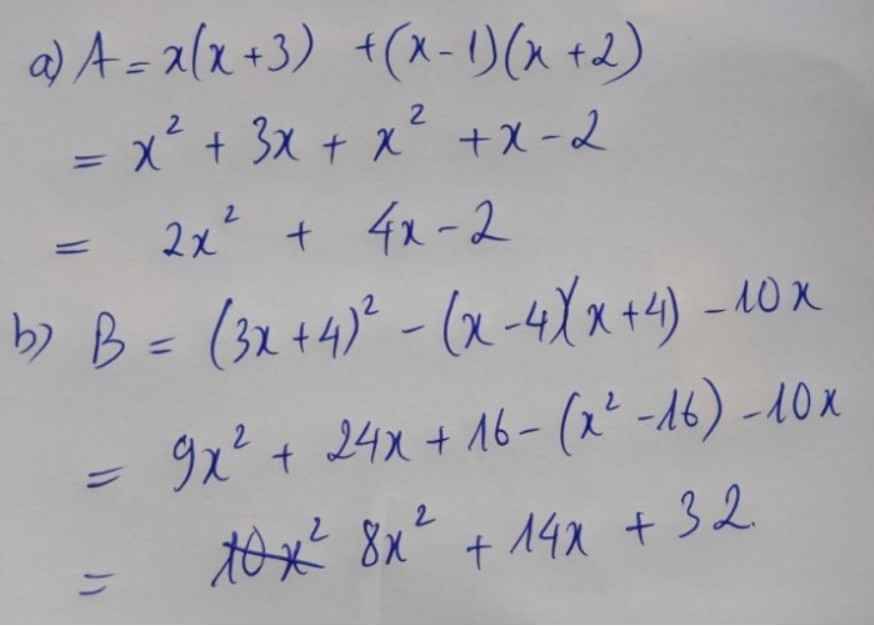 a) A = x(x+3) + (x-1)(x+2)
= x² + 3x + x² + x - 2
= 2x² + 4x - 2
b) B = (3x+4)² - (x-4)(x+4) - 10x
= 9x² + 24x + 16 - (x² - 16) - 10x
= ~~10x²~~ 8x² + 14x + 32.